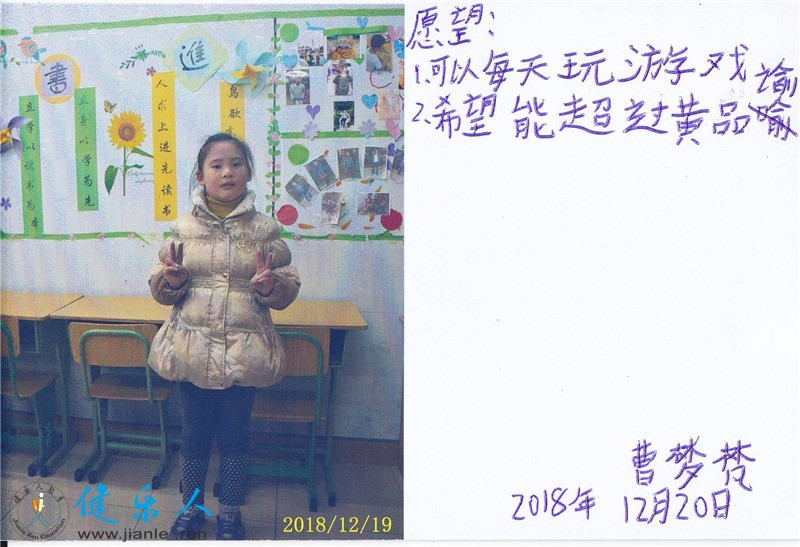 書
進
立学以读书为本
立身以学为先
人求上进先读书
鸟欲
健乐人
www.jianle ren
2018/12/19
愿望:
1.可以每天玩游戏
2.希望能超过黄品谕
曹梦梵
2018年 12月20日